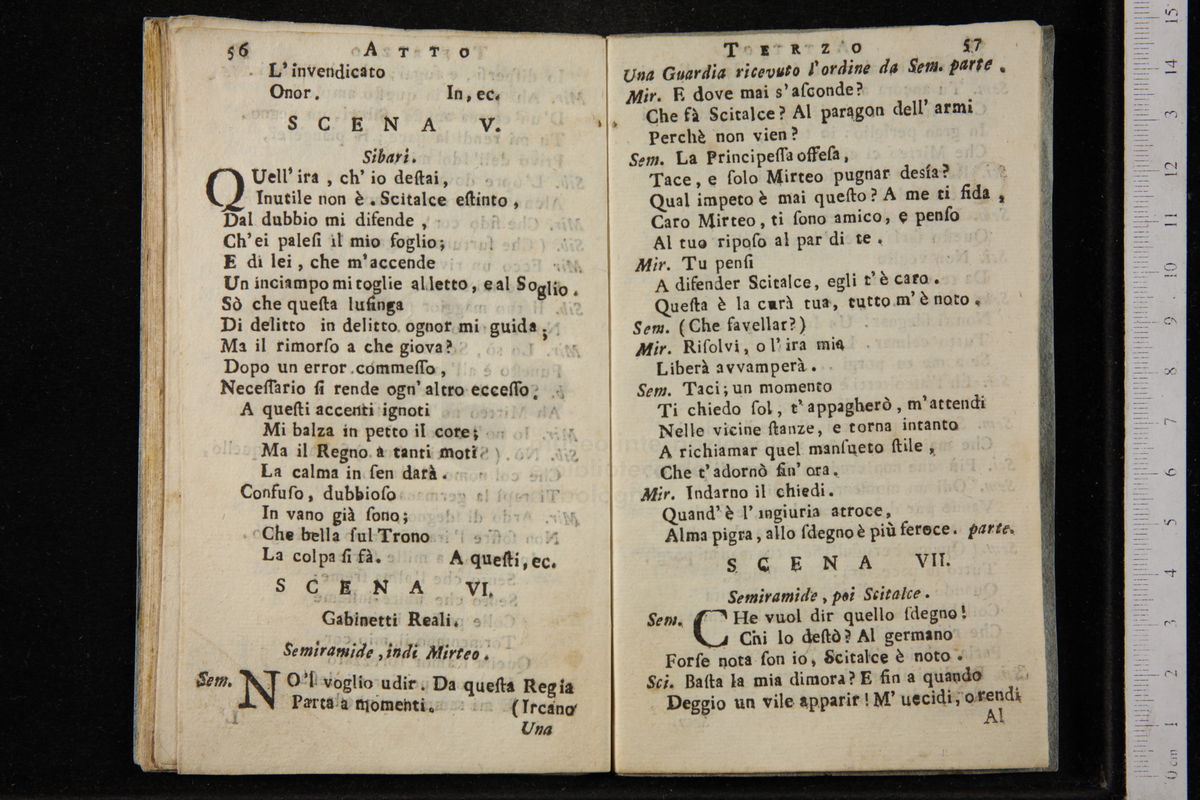 56 ATTO
L' invendicato
Onor. In, ec.
SCENA V.
Sibari.
QUell' ira , ch' io deſtai,
Inutile non è . Scitalce eſtinto ,
Dal dubbio mi difende ,
Ch' ei paleſi il mio foglio;
E di lei , che m' accende
Un inciampo mi toglie al letto, e al Soglio.
Sò che queſta luſinga
Di delitto in delitto ognor mi guida;
Ma il rimorſo a che giova?
Dopo un error commeſſo ,
Neceſſario ſi rende ogn' altro ecceſſo.
A queſti accenti ignoti
Mi balza in petto il core;
Ma il Regno a tanti moti
La calma in ſen darà .
Confuſo, dubbioſo
In vano già ſono;
Che bella ſul Trono
La colpa ſi fà. A queſti, ec.
SCENA VI.
Gabinetti Reali.
Semiramide , indi Mirteo .
Sem. NO'l voglio udir. Da queſta Regia
Parta a momenti. (Ircano
Una
TERZO 57
Una Guardia ricevuto l' ordine da Sem. parte .
Mir. E dove mai s' aſconde?
Che fà Scitalce? Al paragon dell' armi
Perchè non vien?
Sem. La Principeſſa offeſa,
Tace, e ſolo Mirteo pugnar desía?
Qual impeto è mai queſto? A me ti fida ,
Caro Mirteo, ti ſono amico, e penſo
Al tuo ripoſo al par di te .
Mir. Tu penſi
A difender Scitalce, egli t' è caro .
Queſta è la curà tua, tutto m' è noto .
Sem. (Che favellar?)
Mir. Riſolvi, o l' ira mia
Liberà avvamperà .
Sem. Taci; un momento
Ti chiedo ſol, t' appagherò, m' attendi
Nelle vicine ſtanze, e torna intanto
A richiamar quel manſueto ſtile ,
Che t' adornò ſin' ora.
Mir. Indarno il chiedi.
Quand' è l' ingiuria atroce,
Alma pigra, allo ſdegno è più feroce. parte.
SCENA VII.
Semiramide , poi Scitalce .
Sem. CHe vuol dir quello ſdegno!
Chi lo deſtò? Al germano
Forſe nota ſon io, Scitalce è noto .
Sci. Baſta la mia dimora? E ſin a quando
Deggio un vile apparir! M' uccidi, o rendi
Al
15
14
13
12
11
10
9
8
7
6
5
4
3
2
1
0 cm